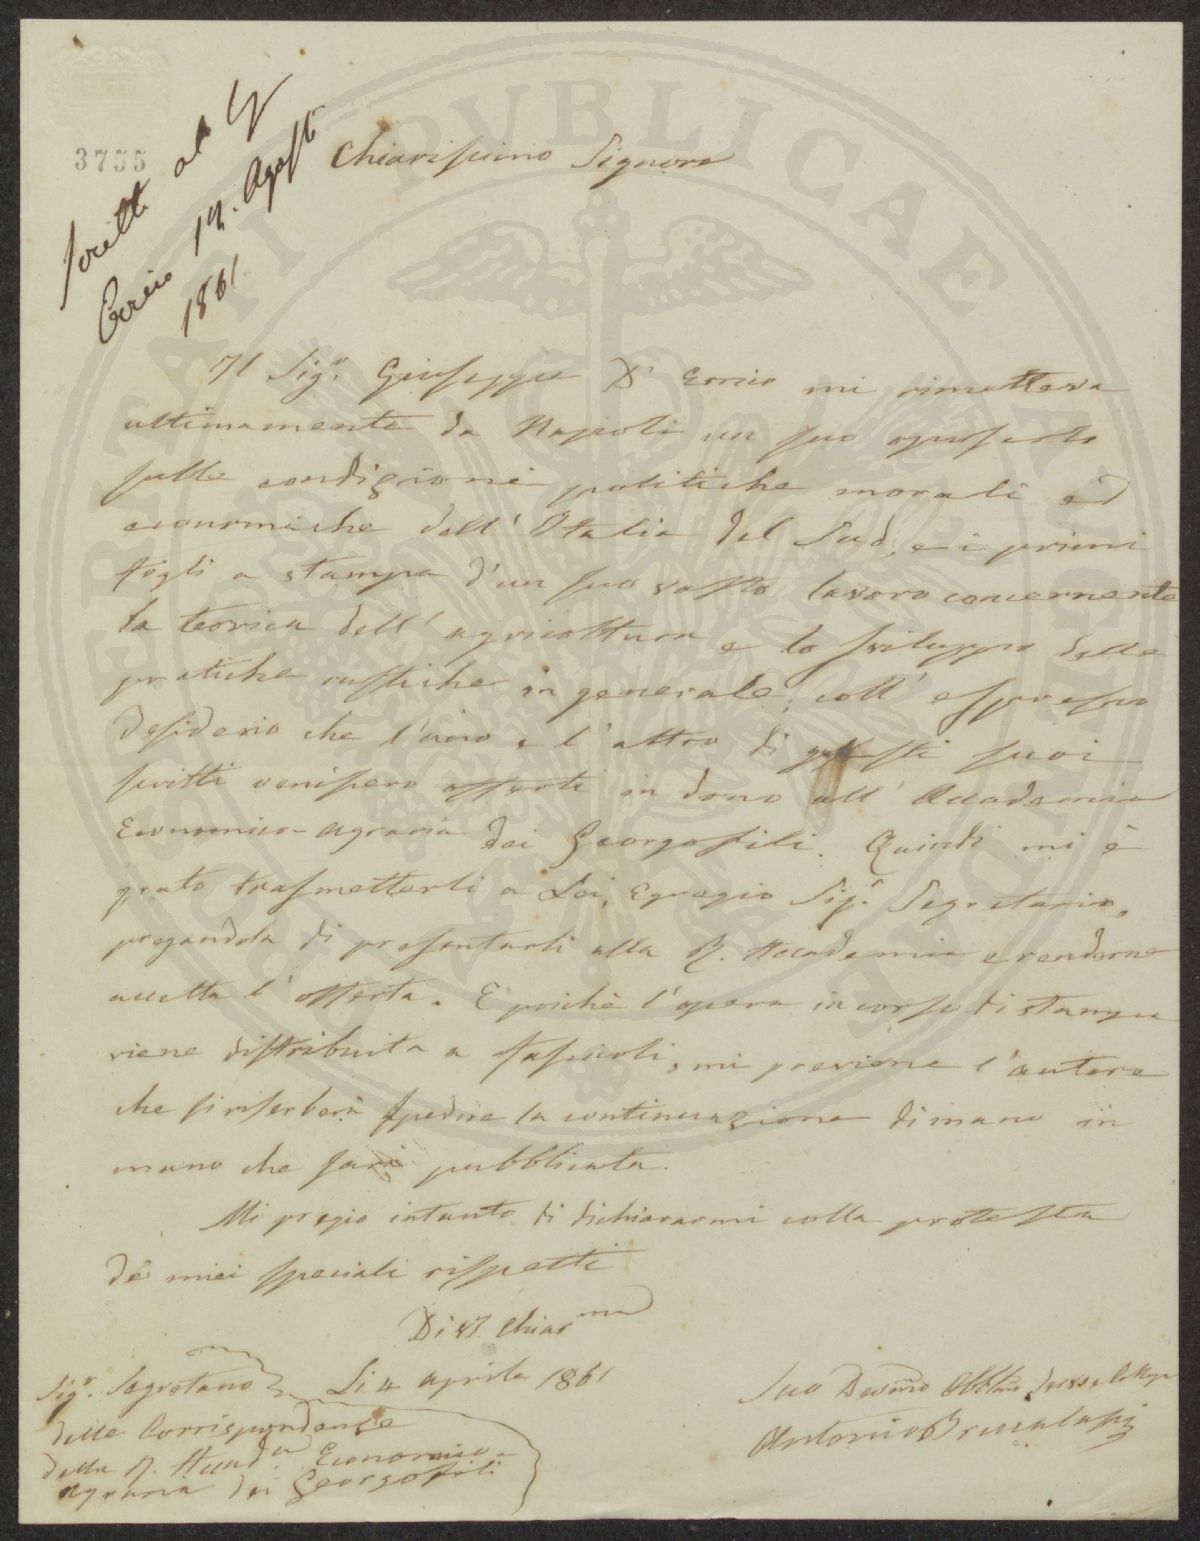 3755
Scritto al S
Errico 14. Agosto
1861
Chiarissimo Signore
Il Sigr. Giuseppe D'Errico mi rimetteva
ultimamente da Napoli un suo opuscolo
sulle condizioni politiche morali ed
economiche dell'Italia del Sud, e i primi
fogli a stampa d'un suo vasto lavoro concernente
la teorica dell'agricoltura e lo sviluppo delle
pratiche rustiche in generale, coll'espresso
desiderio che l'uno e l'altro di questi suoi
scritti venissero offerti in dono all'Accademia
Economico-agraria dei Georgofili. Quindi mi è
grato trasmetterli a Lei, Egregio Sigr. Segretario,
pregandola di presentarli alla R. Accademia e renderne
accetta l'offerta. E poichè l'opera in corso di stampa
viene distribuita a fascicoli, mi previene l'autore
che si riserberà spedire la continuazione di mano in
mano che sarà pubblicata.
Mi pregio intanto di dichiararmi colla protesta
de' miei speciali rispetti
Di V. Chiarma
Sigr. Segretario
Li 4 aprile 1861
delle Corrispondenze
della R. Accadia Economico-
agraria dei Georgofili
Suo Devmo Obblmo Servo e Collega
Antonio Brucalassi